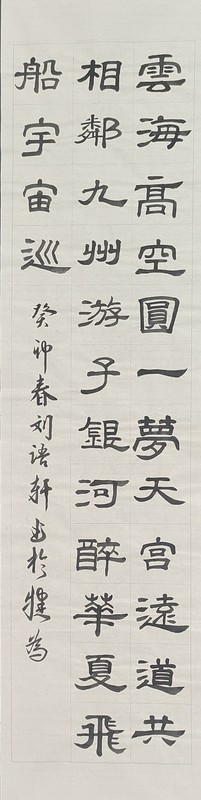 雲海高空圓一夢天宮遠道共
相鄰九州游子銀河醉華夏飛
船宇宙巡
癸卯春刘语轩书於犍為